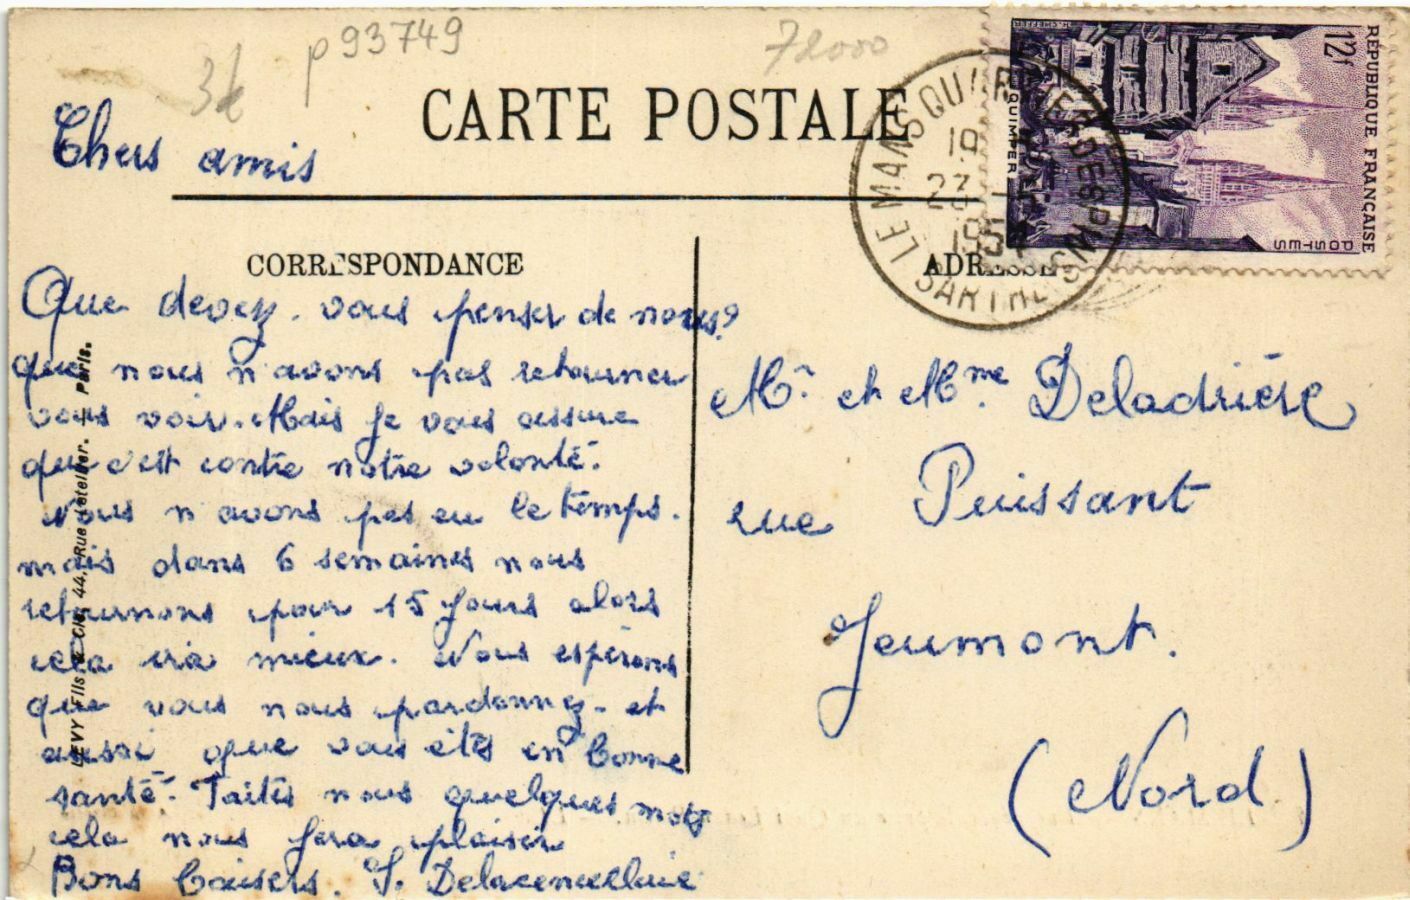 p 93749
72000
3f
CARTE POSTALE
Chers amis
CORRESPONDANCE
Que devez. vous penser de nous?
que nous n'avons pas retourner
vous voir. Mais je vous assure
que c'est contre notre volonté.
Nous n'avons pas eu le temps.
mais dans 6 semaines nous
retournons pour 15 jours alors
cela ira mieux. Nous espérons
que vous nous pardonnez. et
aussi que vous êtes en bonne
santé. Faites nous quelques mots
cela nous fera plaisir
Bons baisers. J.
LEVY Fils & Cie, 44, Rue Letellier. - Paris.
ADRESSE
Mr et Mme Deladrière
rue Puissant
Jeumont.
(Nord)
RÉPUBLIQUE FRANÇAISE
12f
POSTES
QUIMPER
LE MANS QUARTIER DES PINS
SARTHE
19
23
195